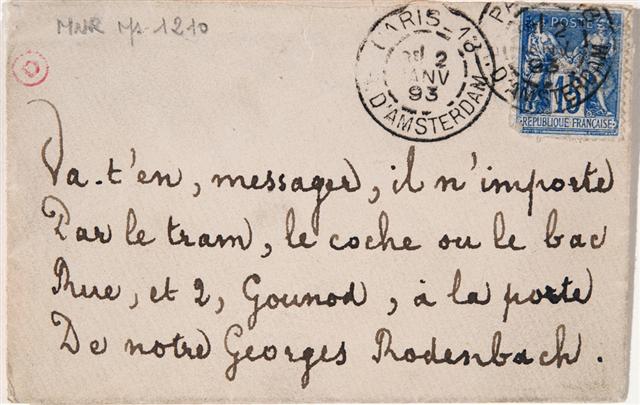 MNR Ms-1210
PARIS-18
2
JANV
93
D'AMSTERDAM
POSTE
2
93
D'AMSTERDAM
15
REPUBLIQUE FRANÇAISE
Va-t'en, messager, il n'importe
Par le tram, le coche ou le bac
Rue, et 2, Gounod, à la porte
De notre Georges Rodenbach.